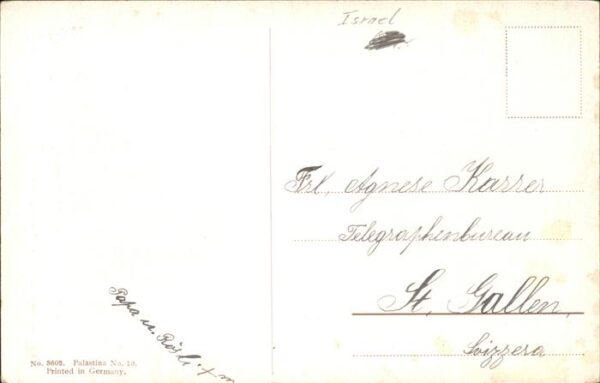 Israel
Frl. Agnese Karrer
Telegraphenbureau
St. Gallen,
Svizzera
Papa u. Rösli
No. 8602. Palästina No. 10.
Printed in Germany.